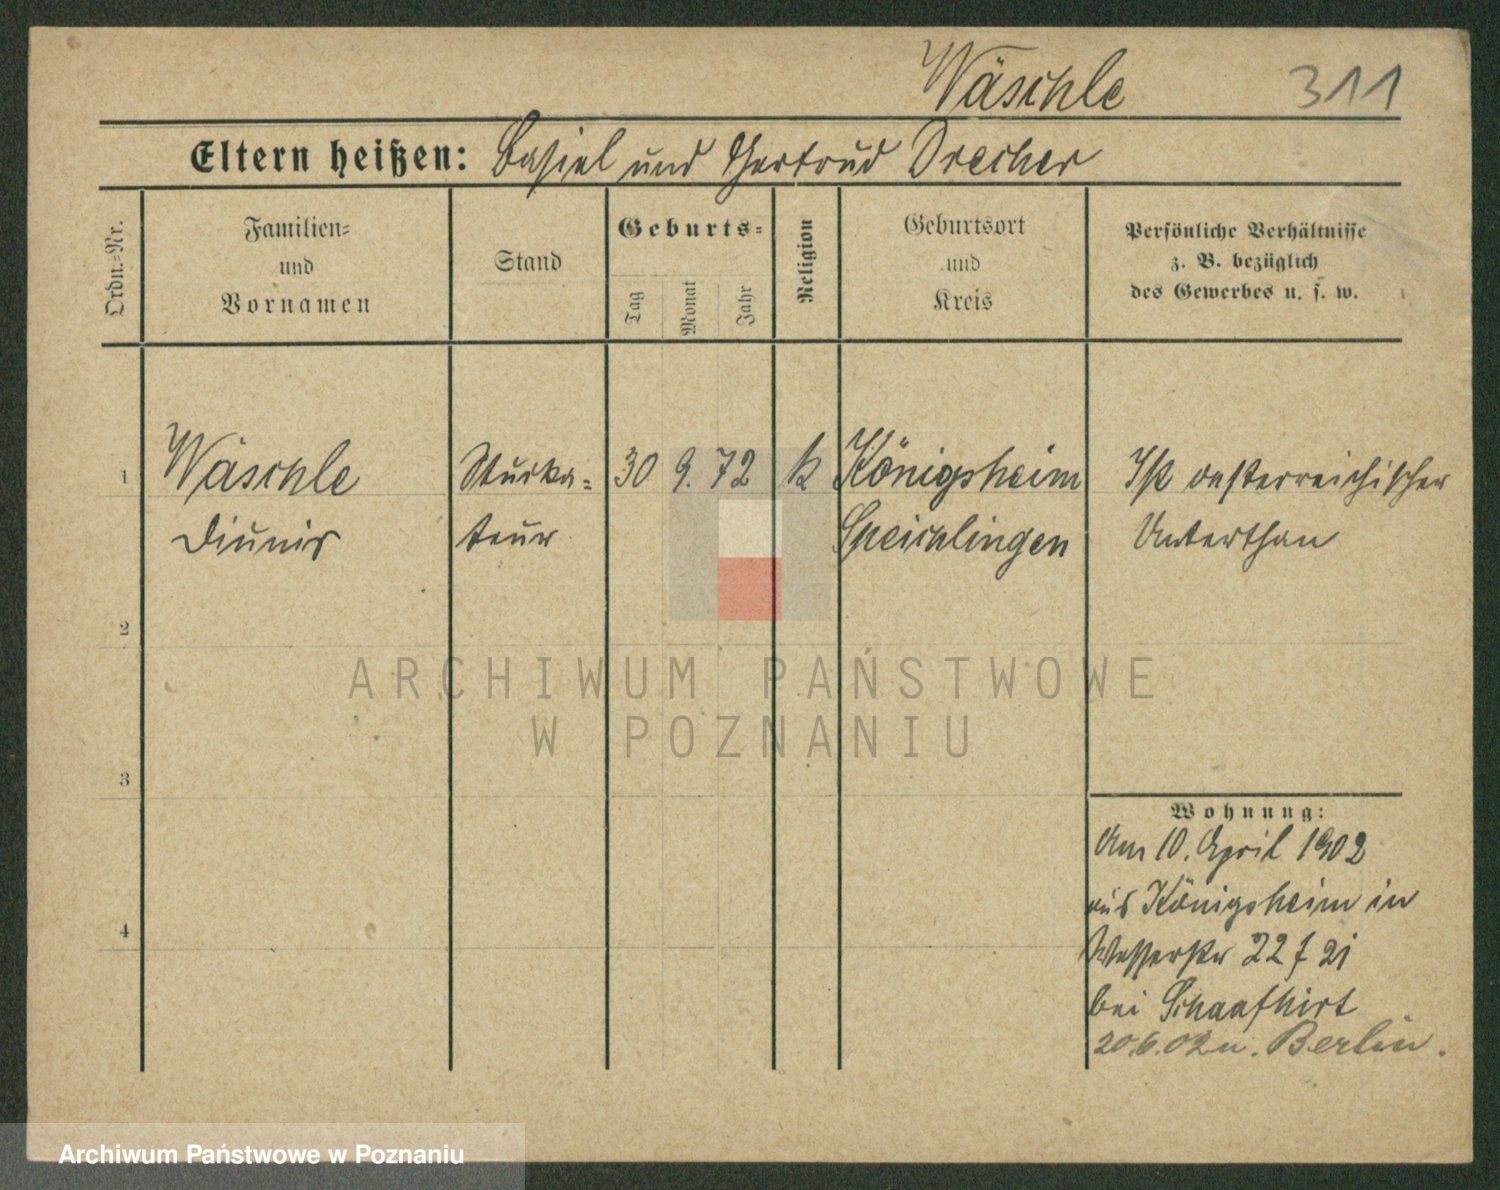 Wäschle 311
Eltern heißen: Basiel und Gertrud Drecher
Ordn.-Nr.
Familien-
und
Vornamen
Stand
Geburts-
Tag
Monat
Jahr
Religion
Geburtsort
und
Kreis
Persönliche Verhältnisse
z. B. bezüglich
des Gewerbes u. s. w.
1 Wäschle Stucka- 30 9. 72 k Königsheim Ist oesterreichischer
teur Speichlingen Unterthan
2
3
4
Wohnung:
Am 10. April 1902
aus Königsheim in
Wasserstr 22 f 21
bei Schaafhirt
20.6.02 n. Berlin.
ARCHIWUM PAŃSTWOWE
W POZNANIU
Archiwum Państwowe w Poznaniu